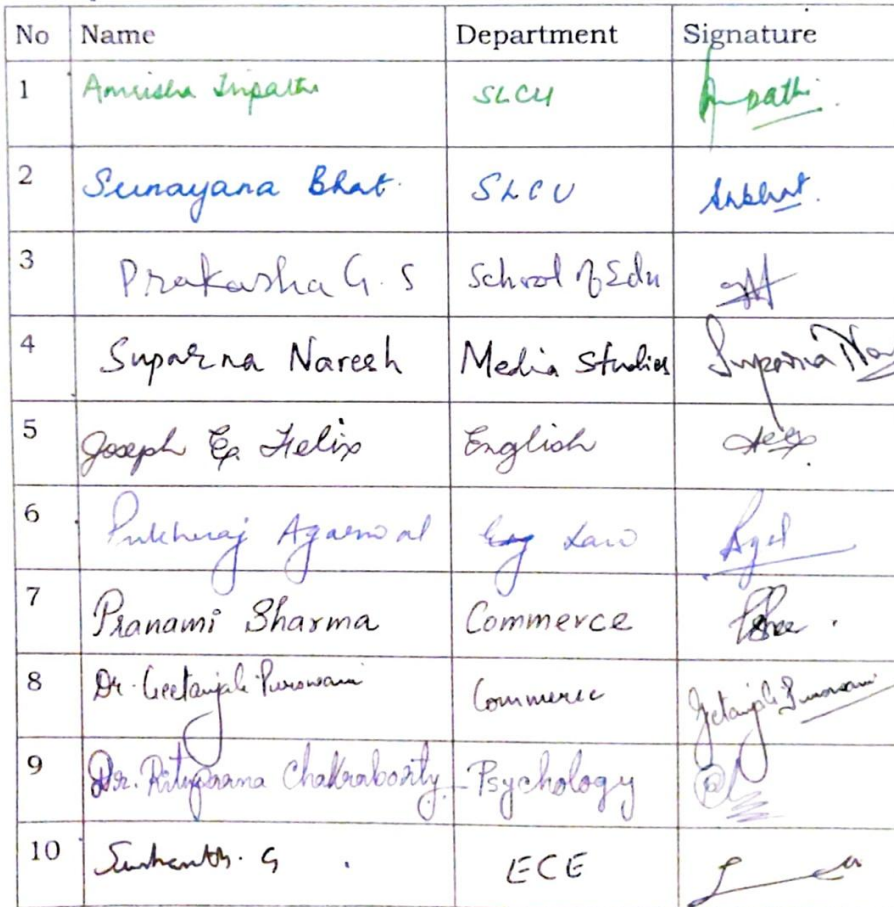 No Name Department Signature
1 Amrisha Tripathi SLCU
2 Sunayana Bhat. SLCU Snbhat.
3 Prakasha G. S School of Edu
4 Suparna Naresh Media Studies Suparna
5 Joseph Felix English
6 Pukhraj Agarwal Law
7 Pranami Sharma Commerce
8 Dr. Geetanjali Purswani Commerce Geetanjali Purswani
9 Dr. Rituparna Chakraborty Psychology
10 G ECE